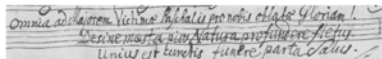 Omnia ad Majorem Victimæ Paschalis pro nobis oblatæ Gloriam!
Desine mæsta pios Natura profundere fletus.
Unius est cunctis funere parta Salus.